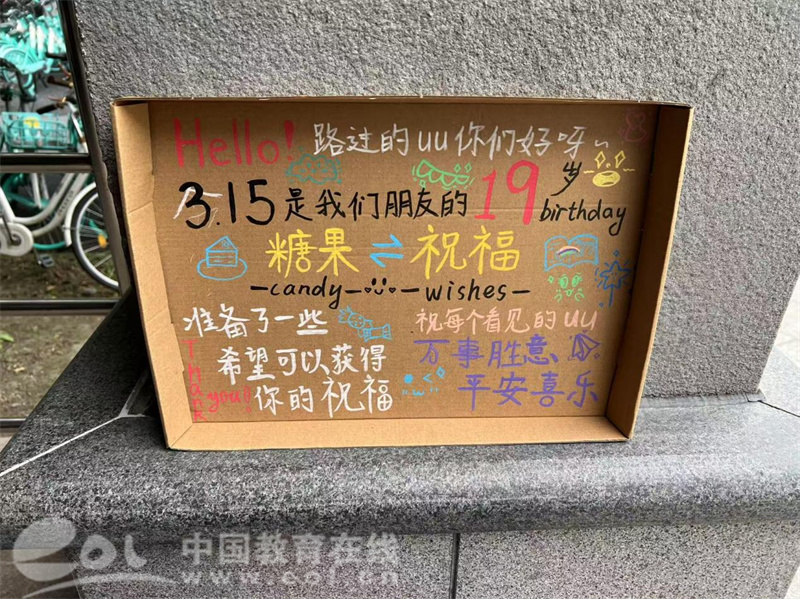 Hello! 路过的uu你们好呀~
3.15是我们朋友的19岁birthday
糖果⇌祝福
candy wishes
准备了一些
希望可以获得
你的祝福
Thank you!!
祝每个看见的uu
万事胜意、
平安喜乐
eol 中国教育在线
www.eol.cn